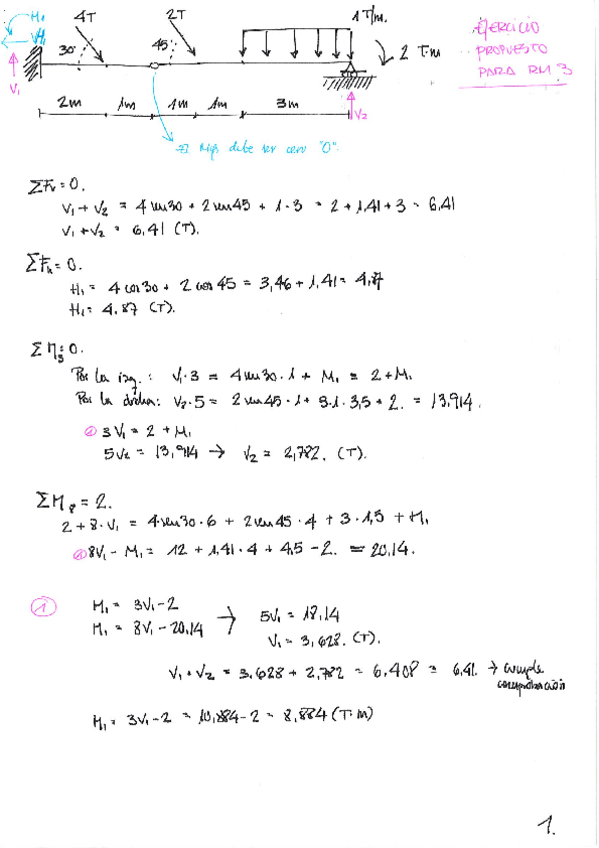 M₁
4T
2T
1 T/m.
EJERCICIO
PROPUESTO
PARA RM 3
H₁
30
45
2 T·m
V₁
V₂
2m
1m
1m
1m
3m
El Mflg debe ser cero "0".
ΣFv = 0.
V₁ + V₂ = 4 sen30 + 2 sen45 + 1·3 = 2 + 1,41 + 3 = 6,41
V₁ + V₂ = 6,41 (T).
ΣFh = 0.
H₁ = 4 cos30 + 2 cos45 = 3,46 + 1,41 = 4,87
H₁ = 4,87 (T).
ΣM₃ = 0.
Por la izq.: V₁·3 = 4 sen30·1 + M₁ = 2 + M₁
Por la dcha: V₂·5 = 2 sen45·1 + 3·1·3,5 + 2. = 13,914.
① 3V₁ = 2 + M₁
5V₂ = 13,914 → V₂ = 2,782. (T).
ΣM₈ = 2.
2 + 8·V₁ = 4·sen30·6 + 2 sen45·4 + 3·1,5 + M₁
① 8V₁ - M₁ = 12 + 1,41·4 + 4,5 - 2. = 20,14.
① M₁ = 3V₁ - 2
M₁ = 8V₁ - 20,14
5V₁ = 18,14
V₁ = 3,628. (T).
V₁ + V₂ = 3,628 + 2,782 = 6,408 = 6,41. → cumple comprobación
M₁ = 3V₁ - 2 = 10,884 - 2 = 8,884 (T·m)
1.